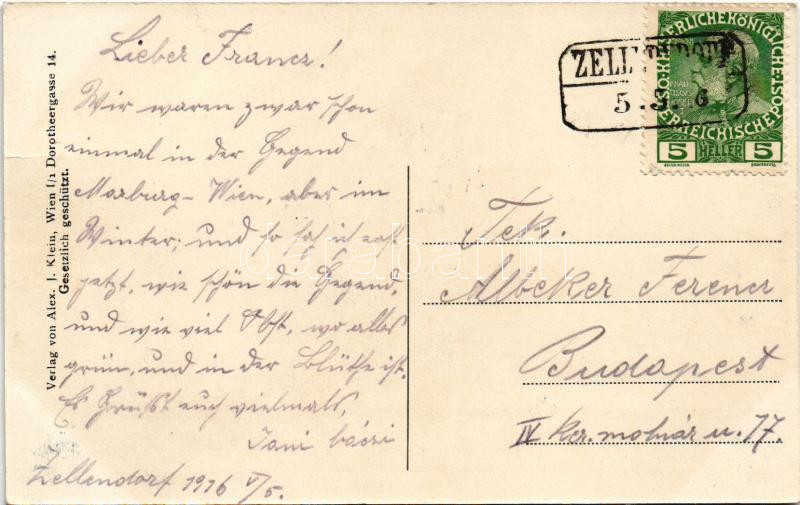 Verlag von Alex. J. Klein, Wien I/1 Dorotheergasse 14.
Gesetzlich geschützt.
Lieber Francz!
Wir waren zwar schon
einmal in der Gegend
Marburg-Wien, aber im
Winter; und so sah ich erst
jetzt, wie schön die Gegend,
und wie viel Obst, wo alles
grün, und in der Blüthe ist.
Es Grüsst euch vielmals,
Jani bácsi
Zellendorf 1916 V/5.
ZELLENDORF
5 . 5. 6
KAISERLICHE KÖNIGLICHE
ÖSTERREICHISCHE POST
5 HELLER 5
Tek.
Albeker Ferencz
Budapest
IV Ker. molnár u. 17.
darabanth